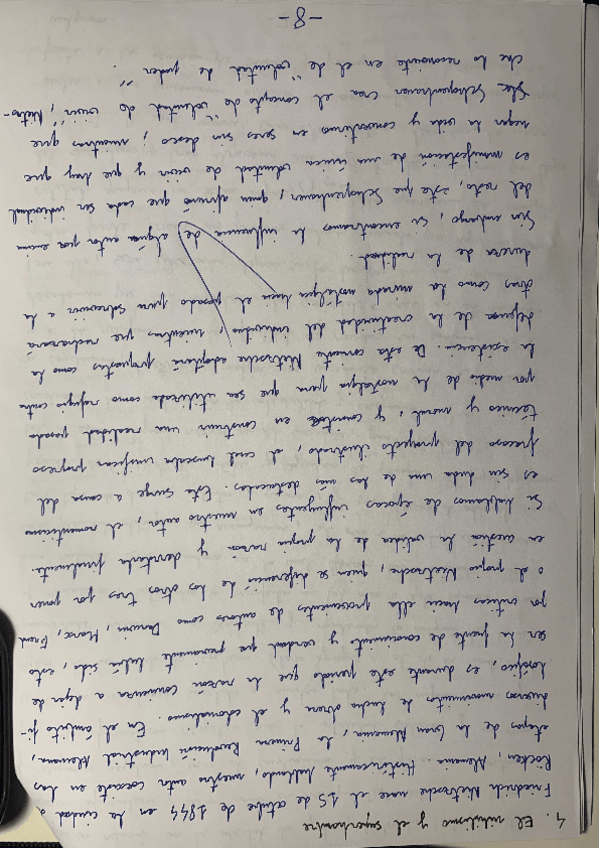 4. El nihilismo y el superhombre
Friedrich Nietzsche nace el 15 de octubre de 1844 en la ciudad d
Röcken, Alemania. Históricamente hablando, nuestro autor coexiste en las
etapas de la Gran Alemania, la Primera Revolución Industrial Alemana,
diversos movimientos de lucha obrera y el colonialismo. En el ámbito fi-
losófico, es durante este periodo que la razón comienza a dejar de
ser la fuente de conocimiento y verdad que previamente había sido, esto
por críticas hacia ella provenientes de autores como Darwin, Marx, Freud
o el propio Nietzsche, quien se diferenció de los otros tres por poner
en cuestión la validez de la propia razón y derrotarla finalmente.
Si hablamos de épocas influyentes en nuestro autor, el romanticismo
es sin duda una de las más destacadas. Esta surge a causa del
fracaso del proyecto ilustrado, el cual buscaba unificar progreso
técnico y moral, y consiste en construir una realidad pasada
por medio de la nostalgia para que sea utilizada como refugio contra
la existencia. De esta corriente Nietzsche adoptará propuestas como la
defensa de la creatividad del individuo, mientras que rechazará
otras como la mirada nostálgica hacia el pasado para sobrevivir a la
dureza de la realidad.
Sin embargo, si encontramos la influencia de algún autor por encima
del resto, este fue Schopenhauer, quien afirmó que cada ser individual
es manifestación de una única voluntad de vivir y que hay que
negar la vida y convertirnos en seres sin deseo; mientras que
Schopenhauer crea el concepto de "voluntad de vivir", Nietzs-
che lo reconvierte en el de "voluntad de poder".
-8-